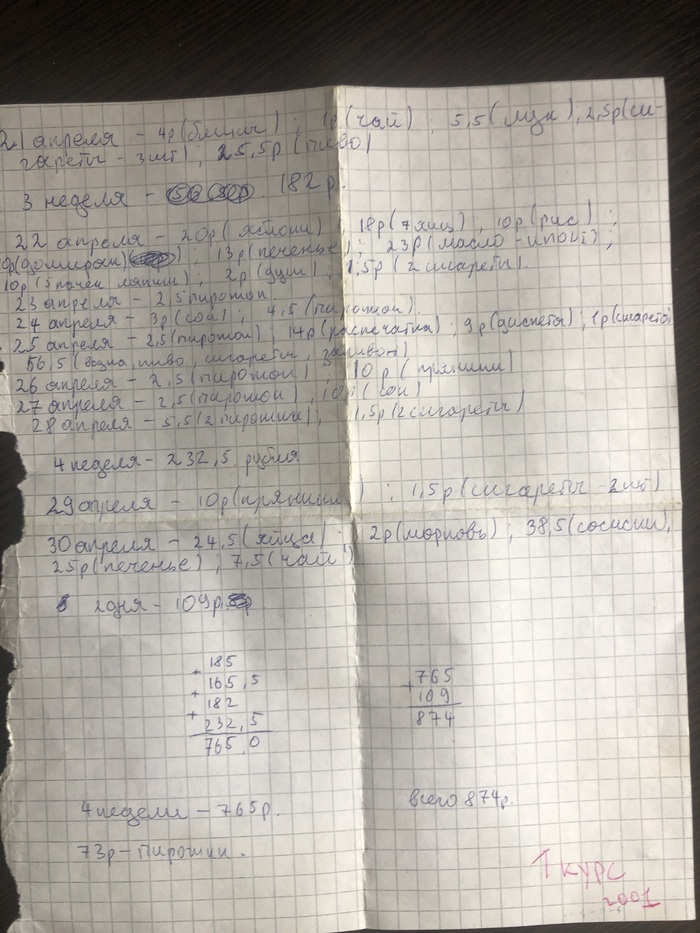 21 апреля - 4р(блины); 1р(чай); 5,5(лук); 2,5р(си-
гареты - 3шт); 25,5р(пиво)
3 неделя - 182р.
22 апреля - 20р(яблоки); 18р(7 яиц); 10р(рис);
9р(доширак); 13р(печенье); 23р(масло - );
10р(5 пачек лапши); 2р(душ); 1,5р(2 сигареты).
23 апреля - 2,5 пирожок
24 апреля - 3р(сок); 4,5(пирожок).
25 апреля - 2,5(пирожок); 14р(распечатка); 9р(дискета); 1р(сигарета)
56,5(водка, пиво, сигареты, )
26 апреля - 2,5(пирожок); 10р(пряники)
27 апреля - 2,5(пирожок), 10р(сок)
28 апреля - 5,5(2 пирожка), 1,5р(2 сигареты)
4 неделя - 232,5 рубля
29 апреля - 10р(пряники); 1,5р(сигареты 2шт)
30 апреля - 24,5(яйца); 2р(морковь); 38,5(сосиски),
25р(печенье), 7,5(чай)
2 дня - 109р
185
+
165,5
+
182
+
232,5
765,0
765
+
109
874
4 недели - 765р.
всего 874р.
73р - пирожки.
1 курс
2001